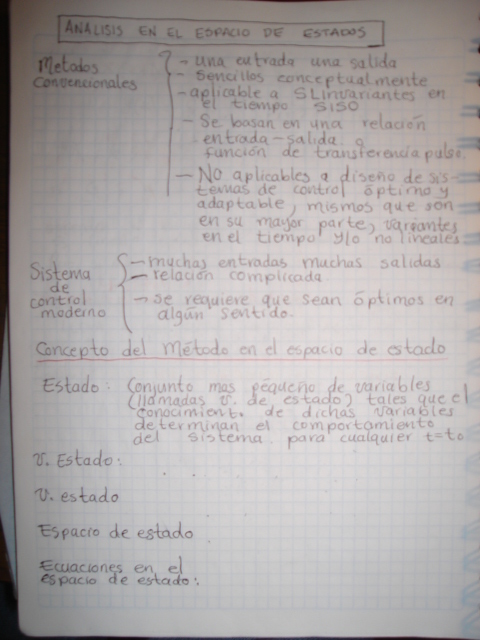 ANALISIS EN EL ESPACIO DE ESTADOS
Metodos
Convencionales
- una entrada una salida
- Sencillos conceptualmente
- aplicable a SLinvariantes en
el tiempo SISO
- Se basan en una relación
entrada-salida o
función de transferencia pulso.
- No aplicables a diseño de sis-
temas de control óptimo y
adaptable, mismos que son
en su mayor parte, variantes
en el tiempo y/o no lineales
Sistema
de
control
moderno
- muchas entradas muchas salidas
- relación complicada
- se requiere que sean óptimos en
algún sentido.
Concepto del Método en el espacio de estado
Estado: Conjunto mas pequeño de variables
(llamadas v. de estado) tales que el
conocimient. de dichas variables
determinan el comportamiento
del sistema para cualquier t=to
V. Estado:
V. estado
Espacio de estado
Ecuaciones en el
espacio de estado: